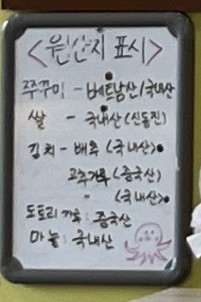 <원산지 표시>
주꾸미 - 베트남산/국내산
쌀 - 국내산(신동진)
김치 - 배추 (국내산)
고추가루 (중국산)
" (국내산)
도토리가루 : 중국산
마늘 : 국내산